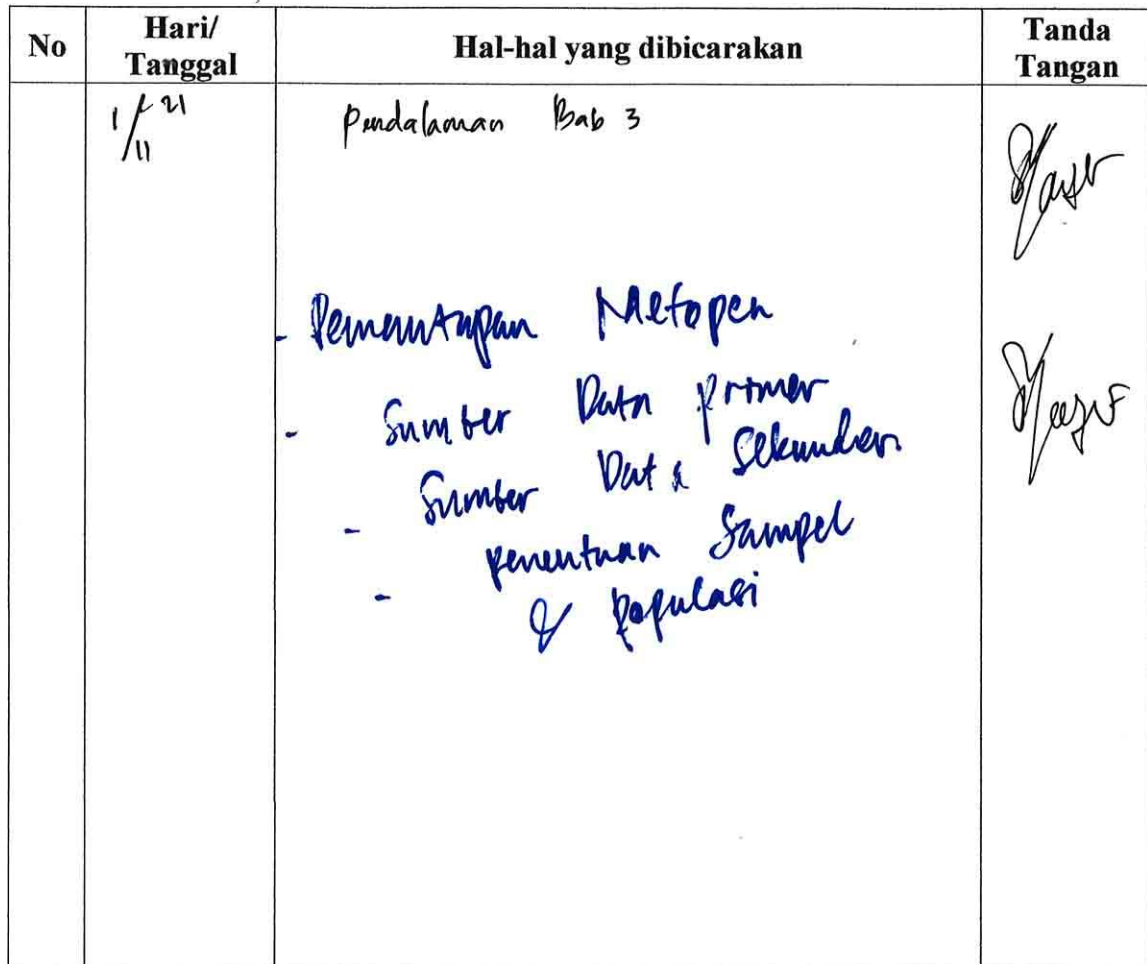 No Hari/ Tanggal Hal-hal yang dibicarakan Tanda Tangan
1/11 21 Pendalaman Bab 3
- Pemantapan Metopen
- Sumber Data Primer
- Sumber Data Sekunder
- Penentuan Sampel
& Populasi